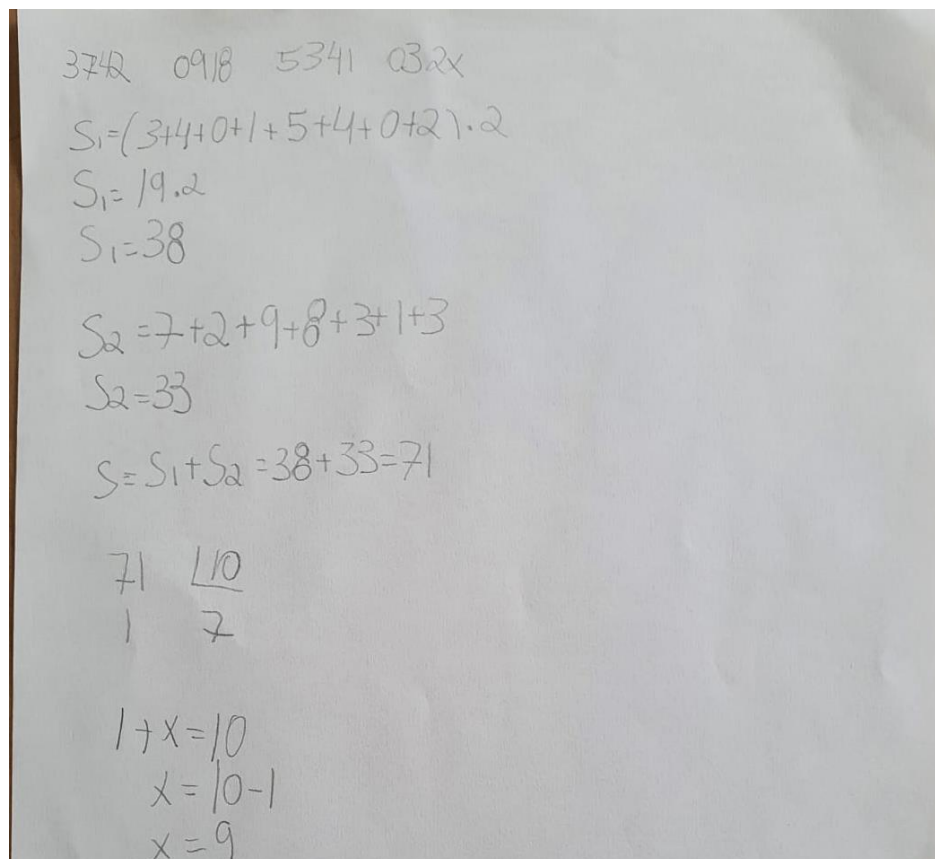 3742 0918 5341 032x
S₁=(3+4+0+1+5+4+0+2).2
S₁=19.2
S₁=38
S2=7+2+9+8+3+1+3
S2=33
S=S₁+S2=38+33=71
71 10
1 7
1+x=10
x=10-1
x=9